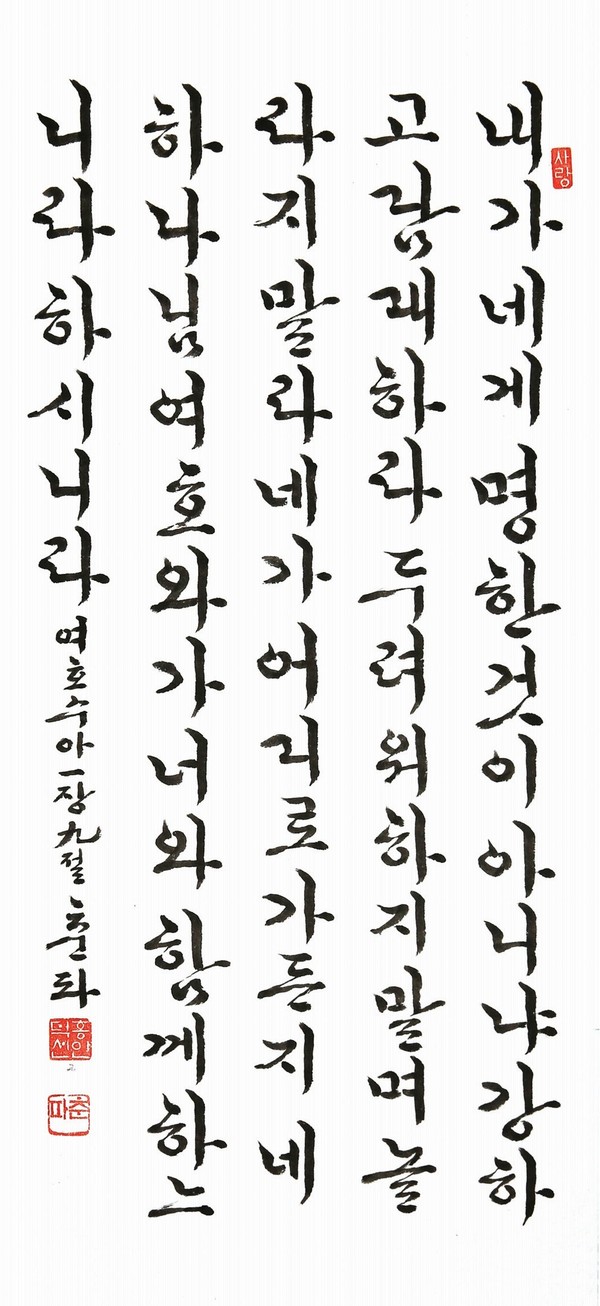 사랑
내가네게명한것이아니냐강하
고담대하라두려워하지말며놀
라지말라네가어디로가든지네
하나님여호와가너와함께하느
니라하시니라 여호수아一장九절 춘파
춘파